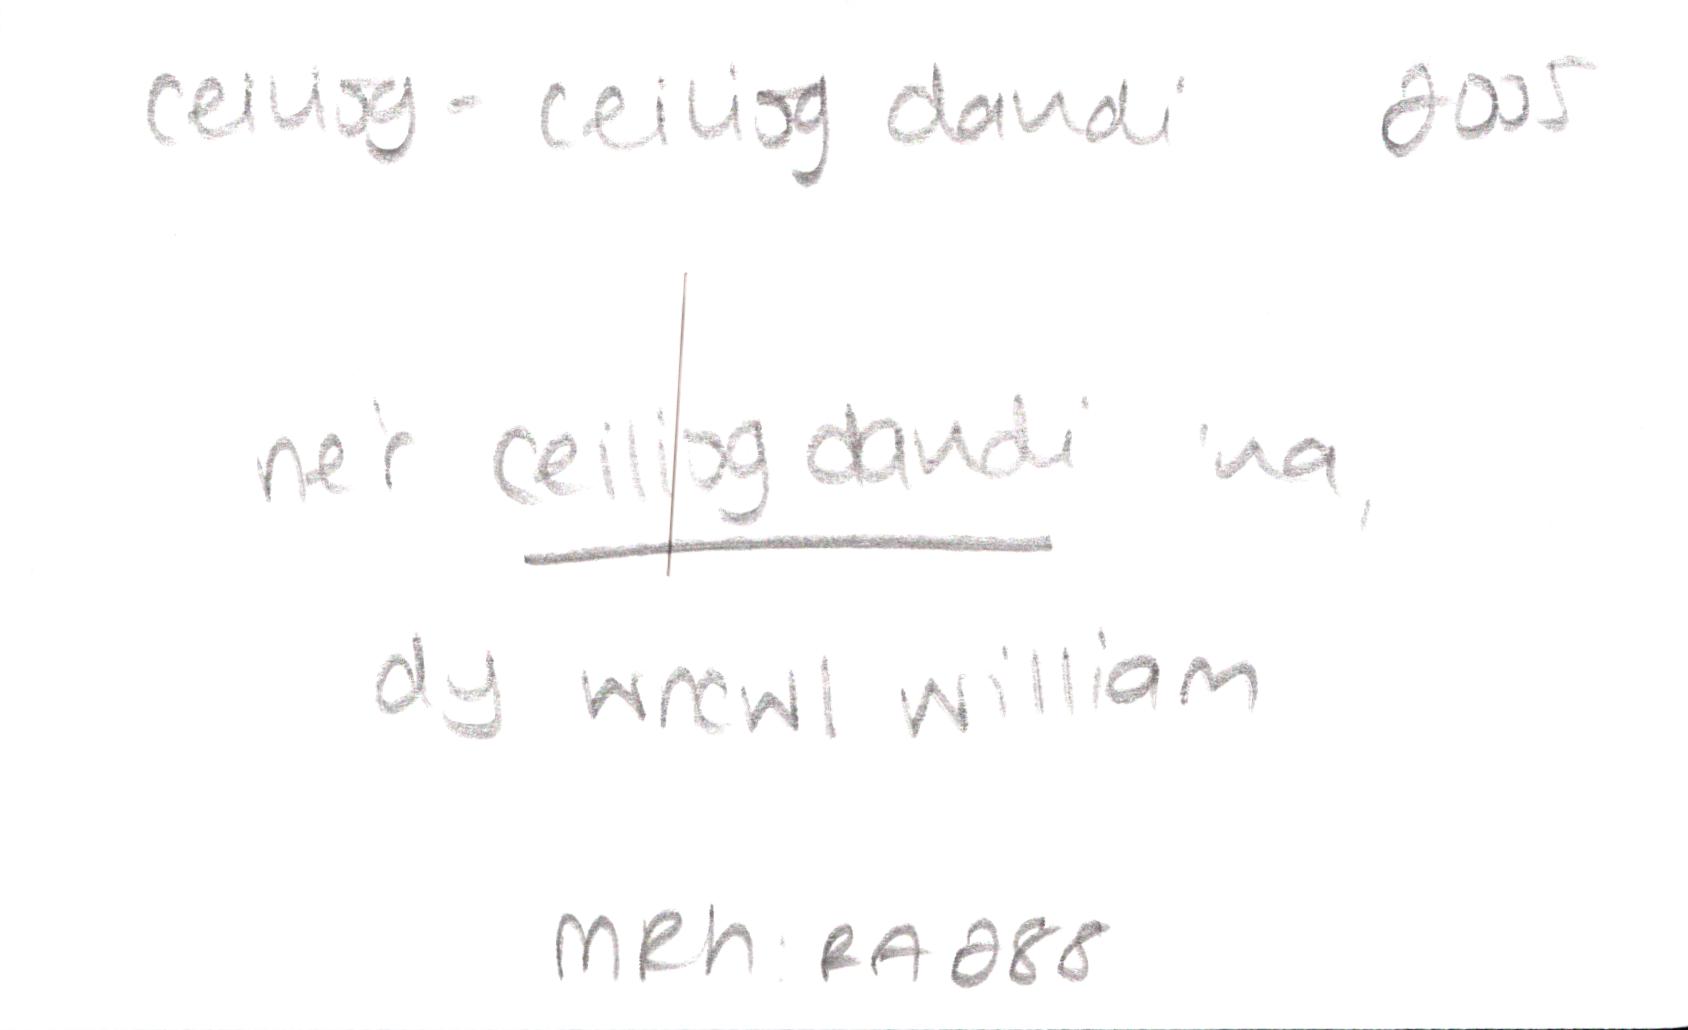 ceiliog - ceiliog dandi 2005
ne'r ceiliog dandi 'na,
dy wrcwl william
MRh: RA 288